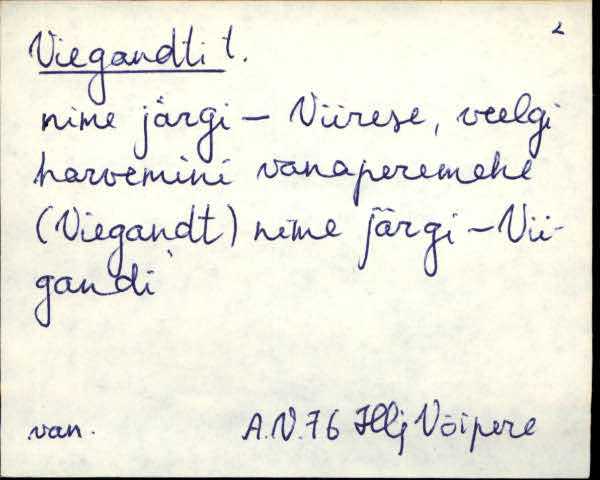 2
Viegandti t.
nime järgi – Viirese, veelgi
harvemini vanaperemehe
(Viegandt) nime järgi – Vii-
gandi
van. A.V. 76 Hlj Võipere